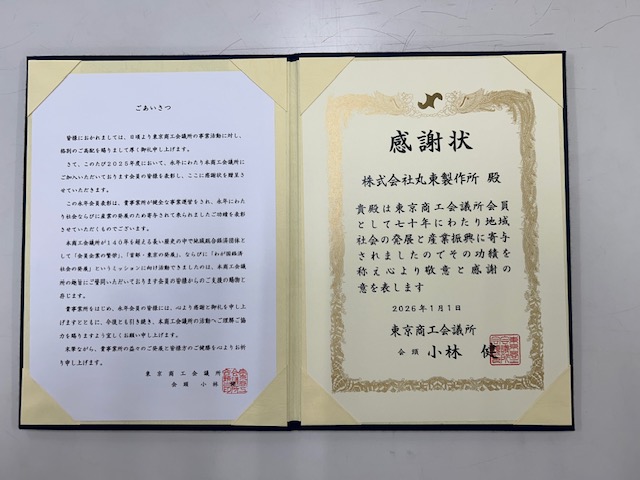 ごあいさつ
皆様におかれましては、日頃より東京商工会議所の事業活動に対し、
格別のご高配を賜りまして厚く御礼申し上げます。
さて、このたび2025年度において、永年にわたり本商工会議所に
ご加入いただいております会員の皆様を表彰し、ここに感謝状を贈呈さ
せていただきます。
この永年会員表彰は、貴事業所が健全な事業運営をされ、永年にわ
たり社会ならびに産業の発展のため寄与されて来られましたご功績を表彰さ
せていただくものでございます。
本商工会議所が140年を超える長い歴史の中で地域総合経済団体と
して「会員企業の繁栄」、「首都・東京の発展」、ならびに「わが国経済
社会の発展」というミッションに向け活動できましたのは、本商工会議
所の趣旨にご賛同いただいております会員の皆様からのご支援の賜物と
存じます。
貴事業所をはじめ、永年会員の皆様には、心より感謝と御礼を申し上
げますとともに、今後とも引き続き、本商工会議所の活動へご理解ご協
力を賜りますよう宜しくお願い申し上げます。
末筆ながら、貴事業所の益々のご発展と皆様方のご健勝を心よりお祈
り申し上げます。
東京商工会議所
会頭 小林 健
感謝状
株式会社丸東製作所 殿
貴殿は東京商工会議所会員
として七十年にわたり地域
社会の発展と産業振興に寄与
されましたのでその功績を
称え心より敬意と感謝の
意を表します
2026年1月1日
東京商工会議所
会頭 小林 健